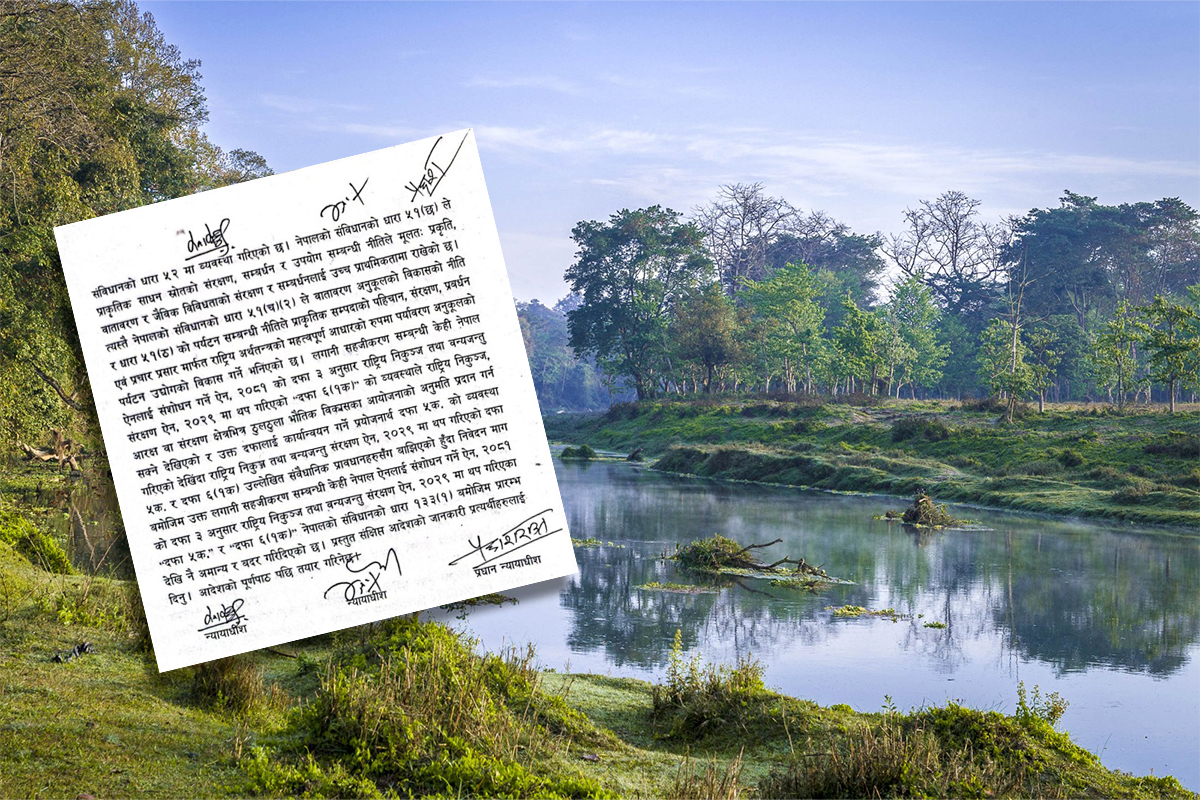 संविधानको धारा ५२ मा व्यवस्था गरिएको छ। नेपालको संविधानको धारा ५१(छ) ले
प्राकृतिक साधन स्रोतको संरक्षण, सम्बर्धन र उपयोग सम्बन्धी नीतिले मूलतः प्रकृति,
वातावरण र जैविक विविधताको संरक्षण र सम्बर्धनलाई उच्च प्राथमिकतामा राखेको छ।
त्यस्तै नेपालको संविधानको धारा ५१(घ)(२) ले वातावरण अनुकूलको विकासको नीति
र धारा ५१(ठ) को पर्यटन सम्बन्धी नीतिले प्राकृतिक सम्पदाको पहिचान, संरक्षण, प्रवर्धन
एवं प्रचार प्रसार मार्फत राष्ट्रिय अर्थतन्त्रको महत्वपूर्ण आधारको रुपमा पर्यावरण अनुकूलको
पर्यटन उद्योगको विकास गर्ने भनिएको छ। लगानी सहजीकरण सम्बन्धी केही नेपाल
ऐनलाई संशोधन गर्ने ऐन, २०८१ को दफा ३ अनुसार राष्ट्रिय निकुञ्ज तथा वन्यजन्तु
संरक्षण ऐन, २०२९ मा थप गरिएको "दफा ६(१क)" को व्यवस्थाले राष्ट्रिय निकुञ्ज,
आरक्ष वा संरक्षण क्षेत्रभित्र ठुलठुला भौतिक विकासका आयोजनाको अनुमति प्रदान गर्न
सक्ने देखिएको र उक्त दफालाई कार्यान्वयन गर्ने प्रयोजनार्थ दफा ५क. को व्यवस्था
गरिएको देखिंदा राष्ट्रिय निकुञ्ज तथा वन्यजन्तु संरक्षण ऐन, २०२९ मा थप गरिएको दफा
५क. र दफा ६(१क) उल्लेखित संवैधानिक प्रावधानहरुसँग बाझिएको हुँदा निवेदन माग
बमोजिम उक्त लगानी सहजीकरण सम्बन्धी केही नेपाल ऐनलाई संशोधन गर्ने ऐन, २०८१
को दफा ३ अनुसार राष्ट्रिय निकुञ्ज तथा वन्यजन्तु संरक्षण ऐन, २०२९ मा थप गरिएका
"दफा ५क." र "दफा ६(१क)" नेपालको संविधानको धारा १३३(१) बमोजिम प्रारम्भ
देखि नै अमान्य र बदर गरिदिएको छ। प्रस्तुत संक्षिप्त आदेशको जानकारी प्रत्यर्थीहरुलाई
दिनु। आदेशको पूर्णपाठ पछि तयार गरिनेछ।
प्रधान न्यायाधीश
न्यायाधीश
न्यायाधीश